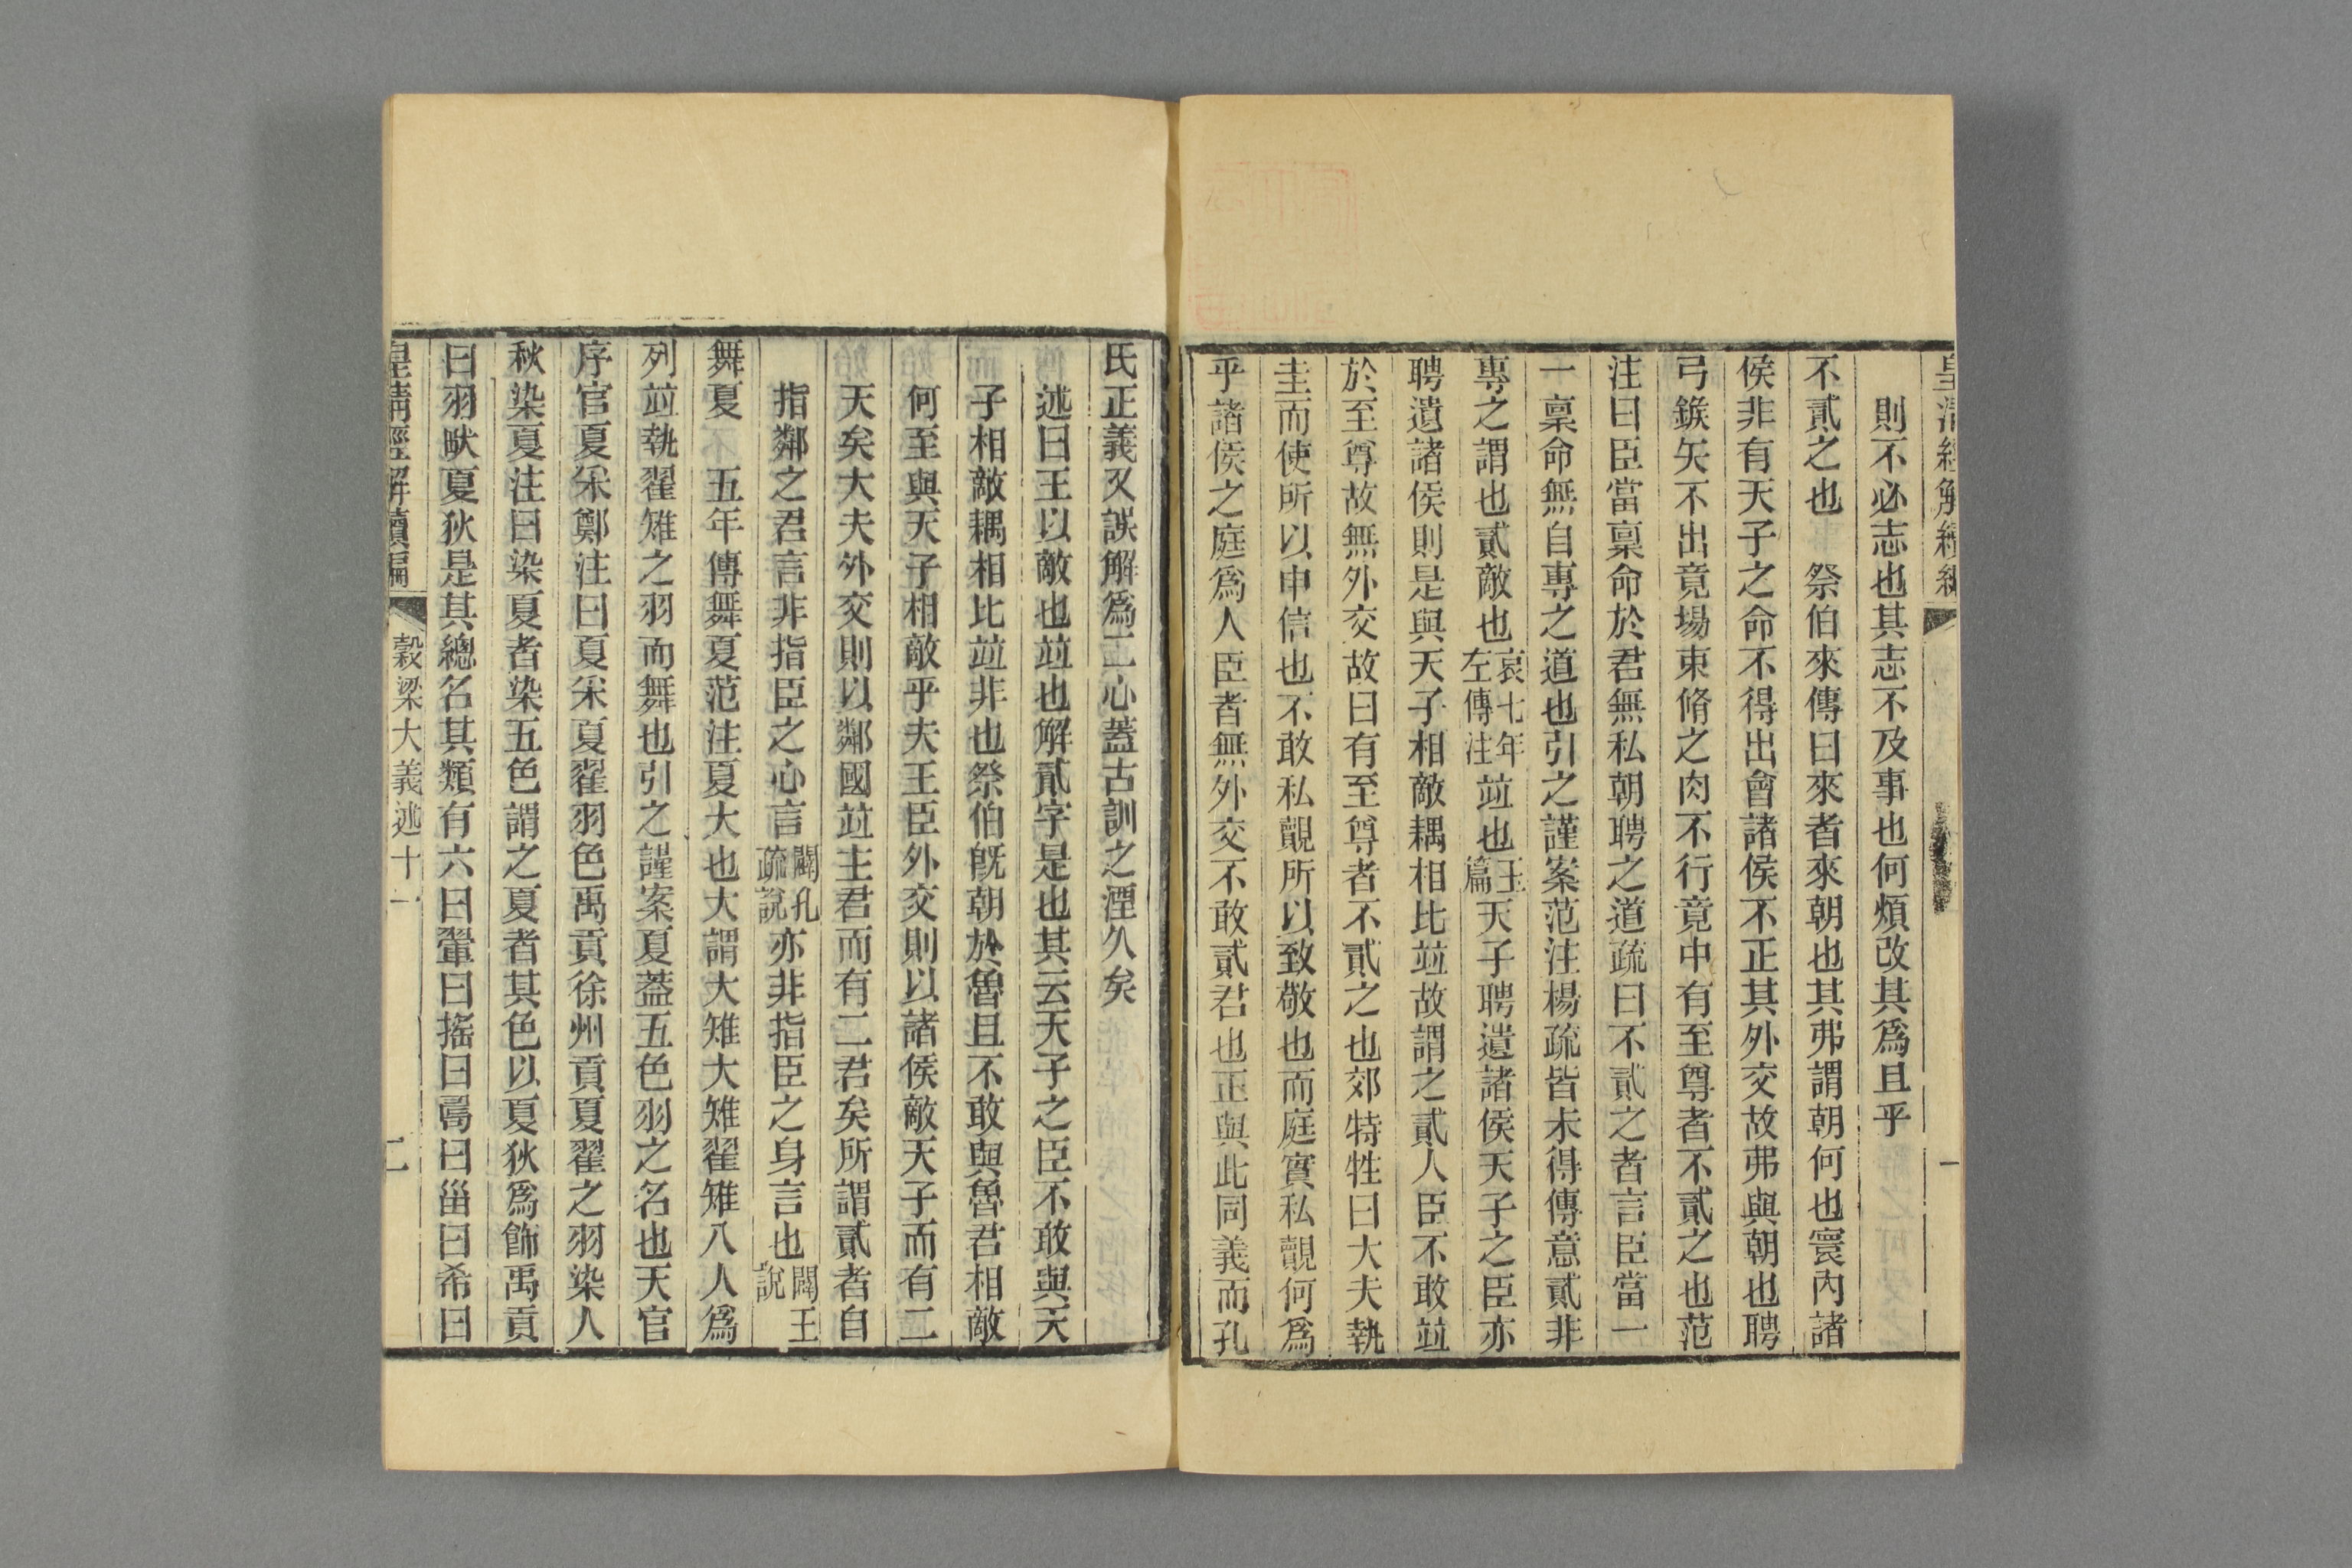 皇清經解續編
一
則不必志也其志不及事也何煩改其爲且乎
不貳之也 祭伯來傳曰來者來朝也其弗謂朝何也寰內諸
侯非有天子之命不得出會諸侯不正其外交故弗與朝也聘
弓鍭矢不出竟場束脩之肉不行竟中有至尊者不貳之也范
注曰臣當稟命於君無私朝聘之道疏曰不貳之者言臣當一
一稟命無自專之道也引之謹案范注楊疏皆未得傳意貳非
專之謂也貳敵也哀七年左傳注竝也玉篇天子聘遺諸侯天子之臣亦
聘遺諸侯則是與天子相敵耦相比竝故謂之貳人臣不敢竝
於至尊故無外交故曰有至尊者不貳之也郊特牲曰大夫執
圭而使所以申信也不敢私覿所以致敬也而庭實私覿何爲
乎諸侯之庭爲人臣者無外交不敢貳君也正與此同義而孔
氏正義又誤解爲二心蓋古訓之湮久矣
述曰王以敵也竝也解貳字是也其云天子之臣不敢與天
子相敵耦相比竝非也祭伯旣朝於魯且不敢與魯君相敵
何至與天子相敵乎夫王臣外交則以諸侯敵天子而有二
天矣大夫外交則以鄰國竝主君而有二君矣所謂貳者自
指鄰之君言非指臣之心言闢孔疏說亦非指臣之身言也闢王說
舞夏 五年傳舞夏范注夏大也大謂大雉大雉翟雉八人爲
列竝執翟雉之羽而舞也引之謹案夏蓋五色羽之名也天官
序官夏采鄭注曰夏采夏翟羽色禹貢徐州貢夏翟之羽染人
秋染夏注曰染夏者染五色謂之夏者其色以夏狄爲飾禹貢
曰羽畎夏狄是其總名其類有六曰翬曰搖曰𠷎曰甾曰希曰
皇淸經解續編
穀梁大義述十一
二